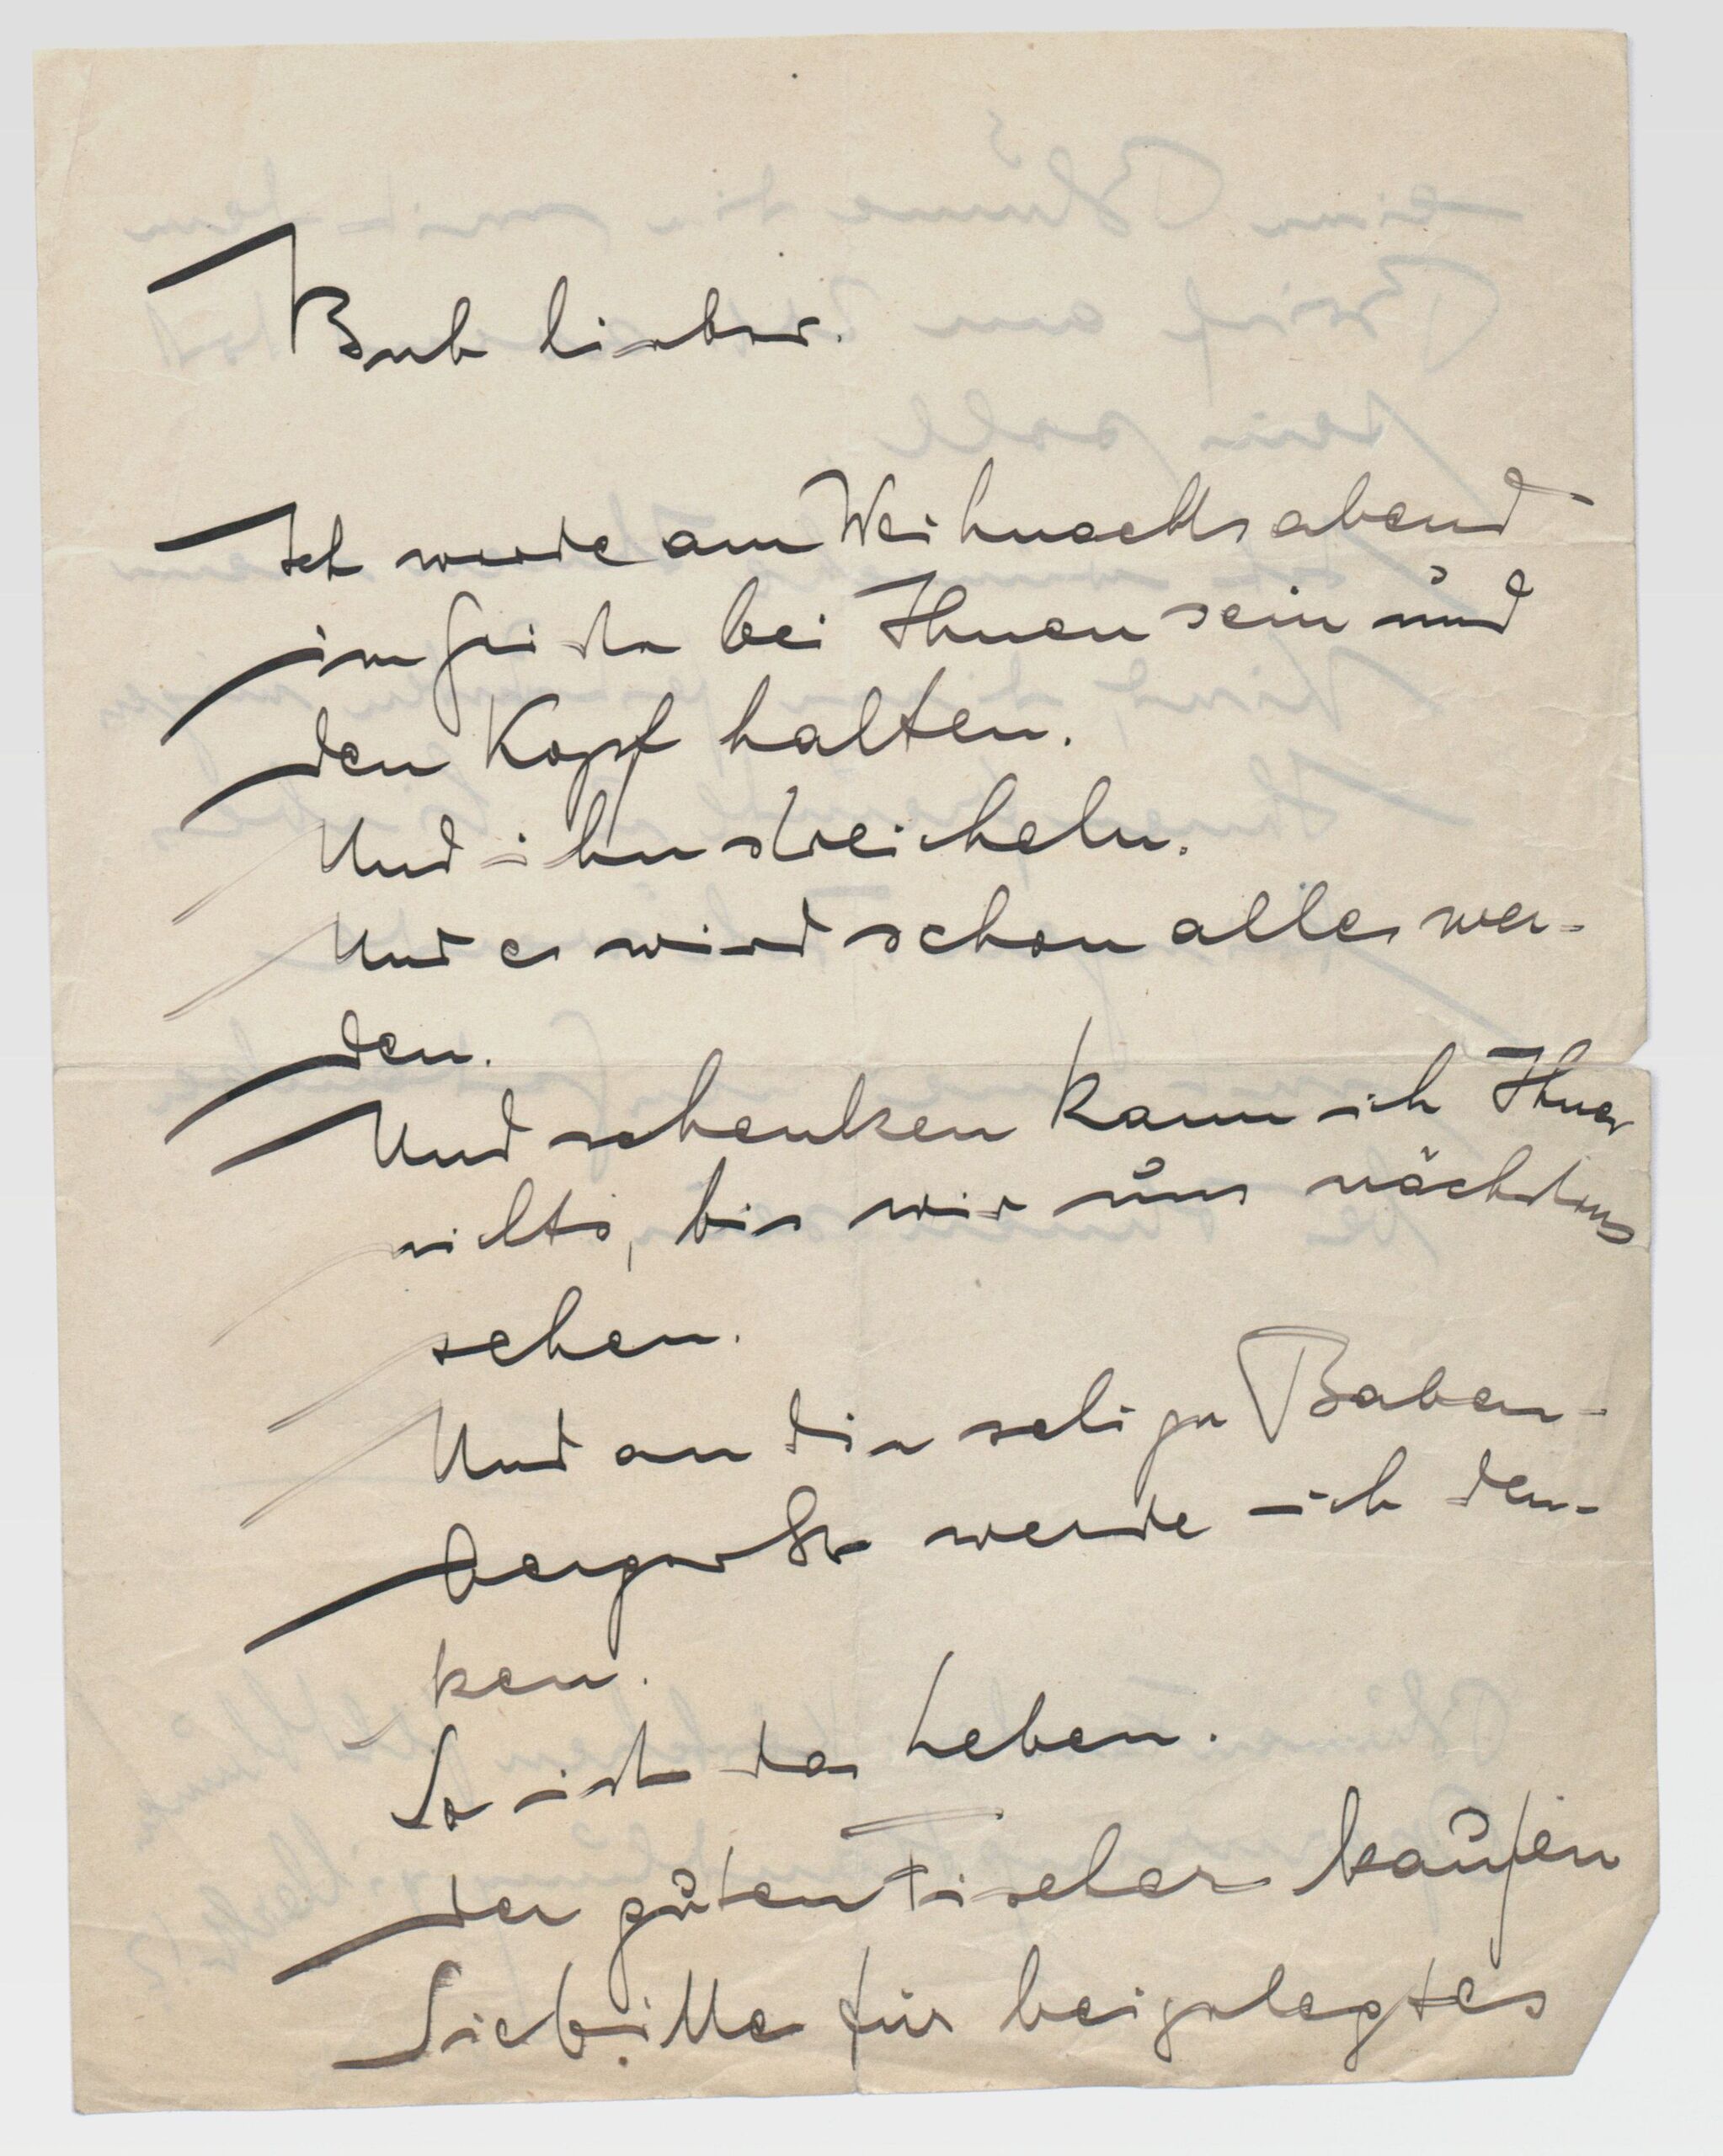 Bub lieber.
Ich werde am Weihnachtsabend
im Geiste bei Ihnen sein und
den Kopf halten.
Und ihn streicheln.
Und es wird schon alles wer-
den.
Und schenken kann ich Ihnen
nichts, bis wir uns nächstens
sehen.
Und an die selige Baben-
bergerstr werde ich den-
ken.
So ist das Leben.
Der guten Fischer kaufen
Sie bitte für beigelegtes